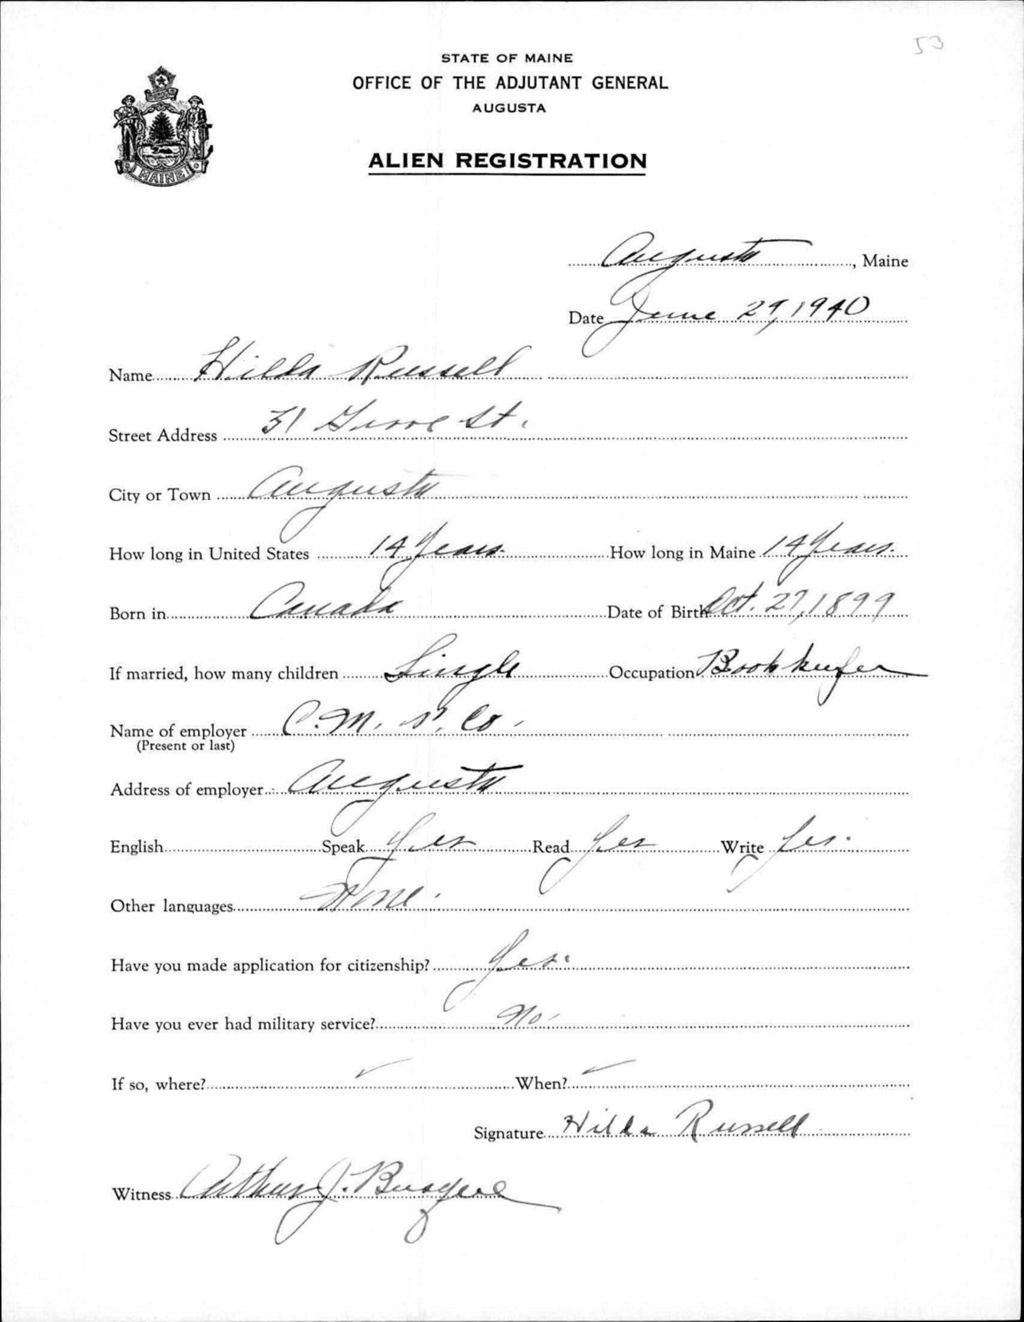 53
STATE OF MAINE
OFFICE OF THE ADJUTANT GENERAL
AUGUSTA
MAINE
ALIEN REGISTRATION
Augusta, Maine
Date June 29, 1940
Name Hilda Russell
Street Address 31 Grove St.
City or Town Augusta
How long in United States 14 Years. How long in Maine 14 Years.
Born in Canada Date of Birth Oct. 27, 1899
If married, how many children Single Occupation Bookkeeper
Name of employer C. M. P. Co.
(Present or last)
Address of employer Augusta
English Speak Yes Read Yes Write Yes.
Other languages None.
Have you made application for citizenship? Yes.
Have you ever had military service? No.
If so, where? When?
Signature Hilda Russell
Witness Arthur J.